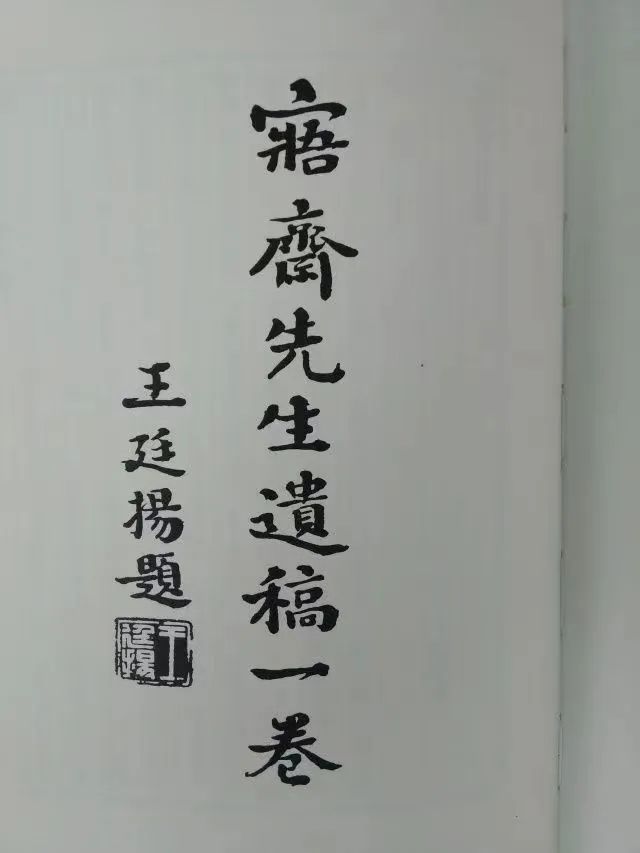 寤齋先生遺稿一卷
王廷揚題
王廷揚